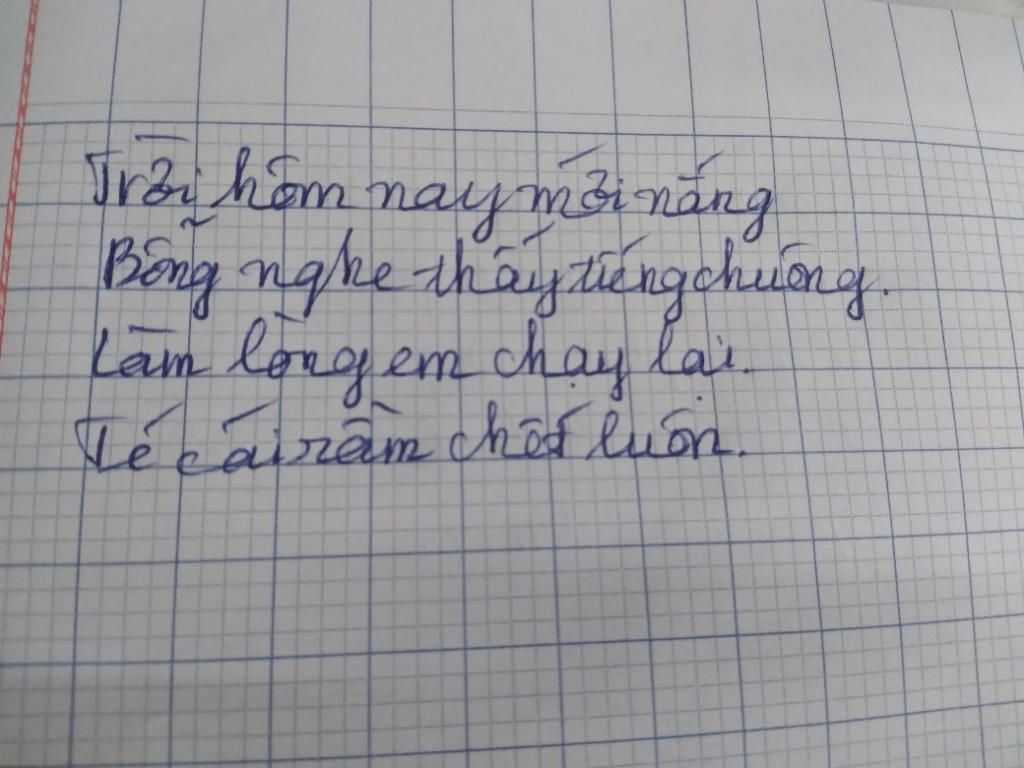 Trời hôm nay mới nắng
Bỗng nghe thấy tiếng chuông.
Làm lòng em chạy lại.
Té cái rầm chết luôn.